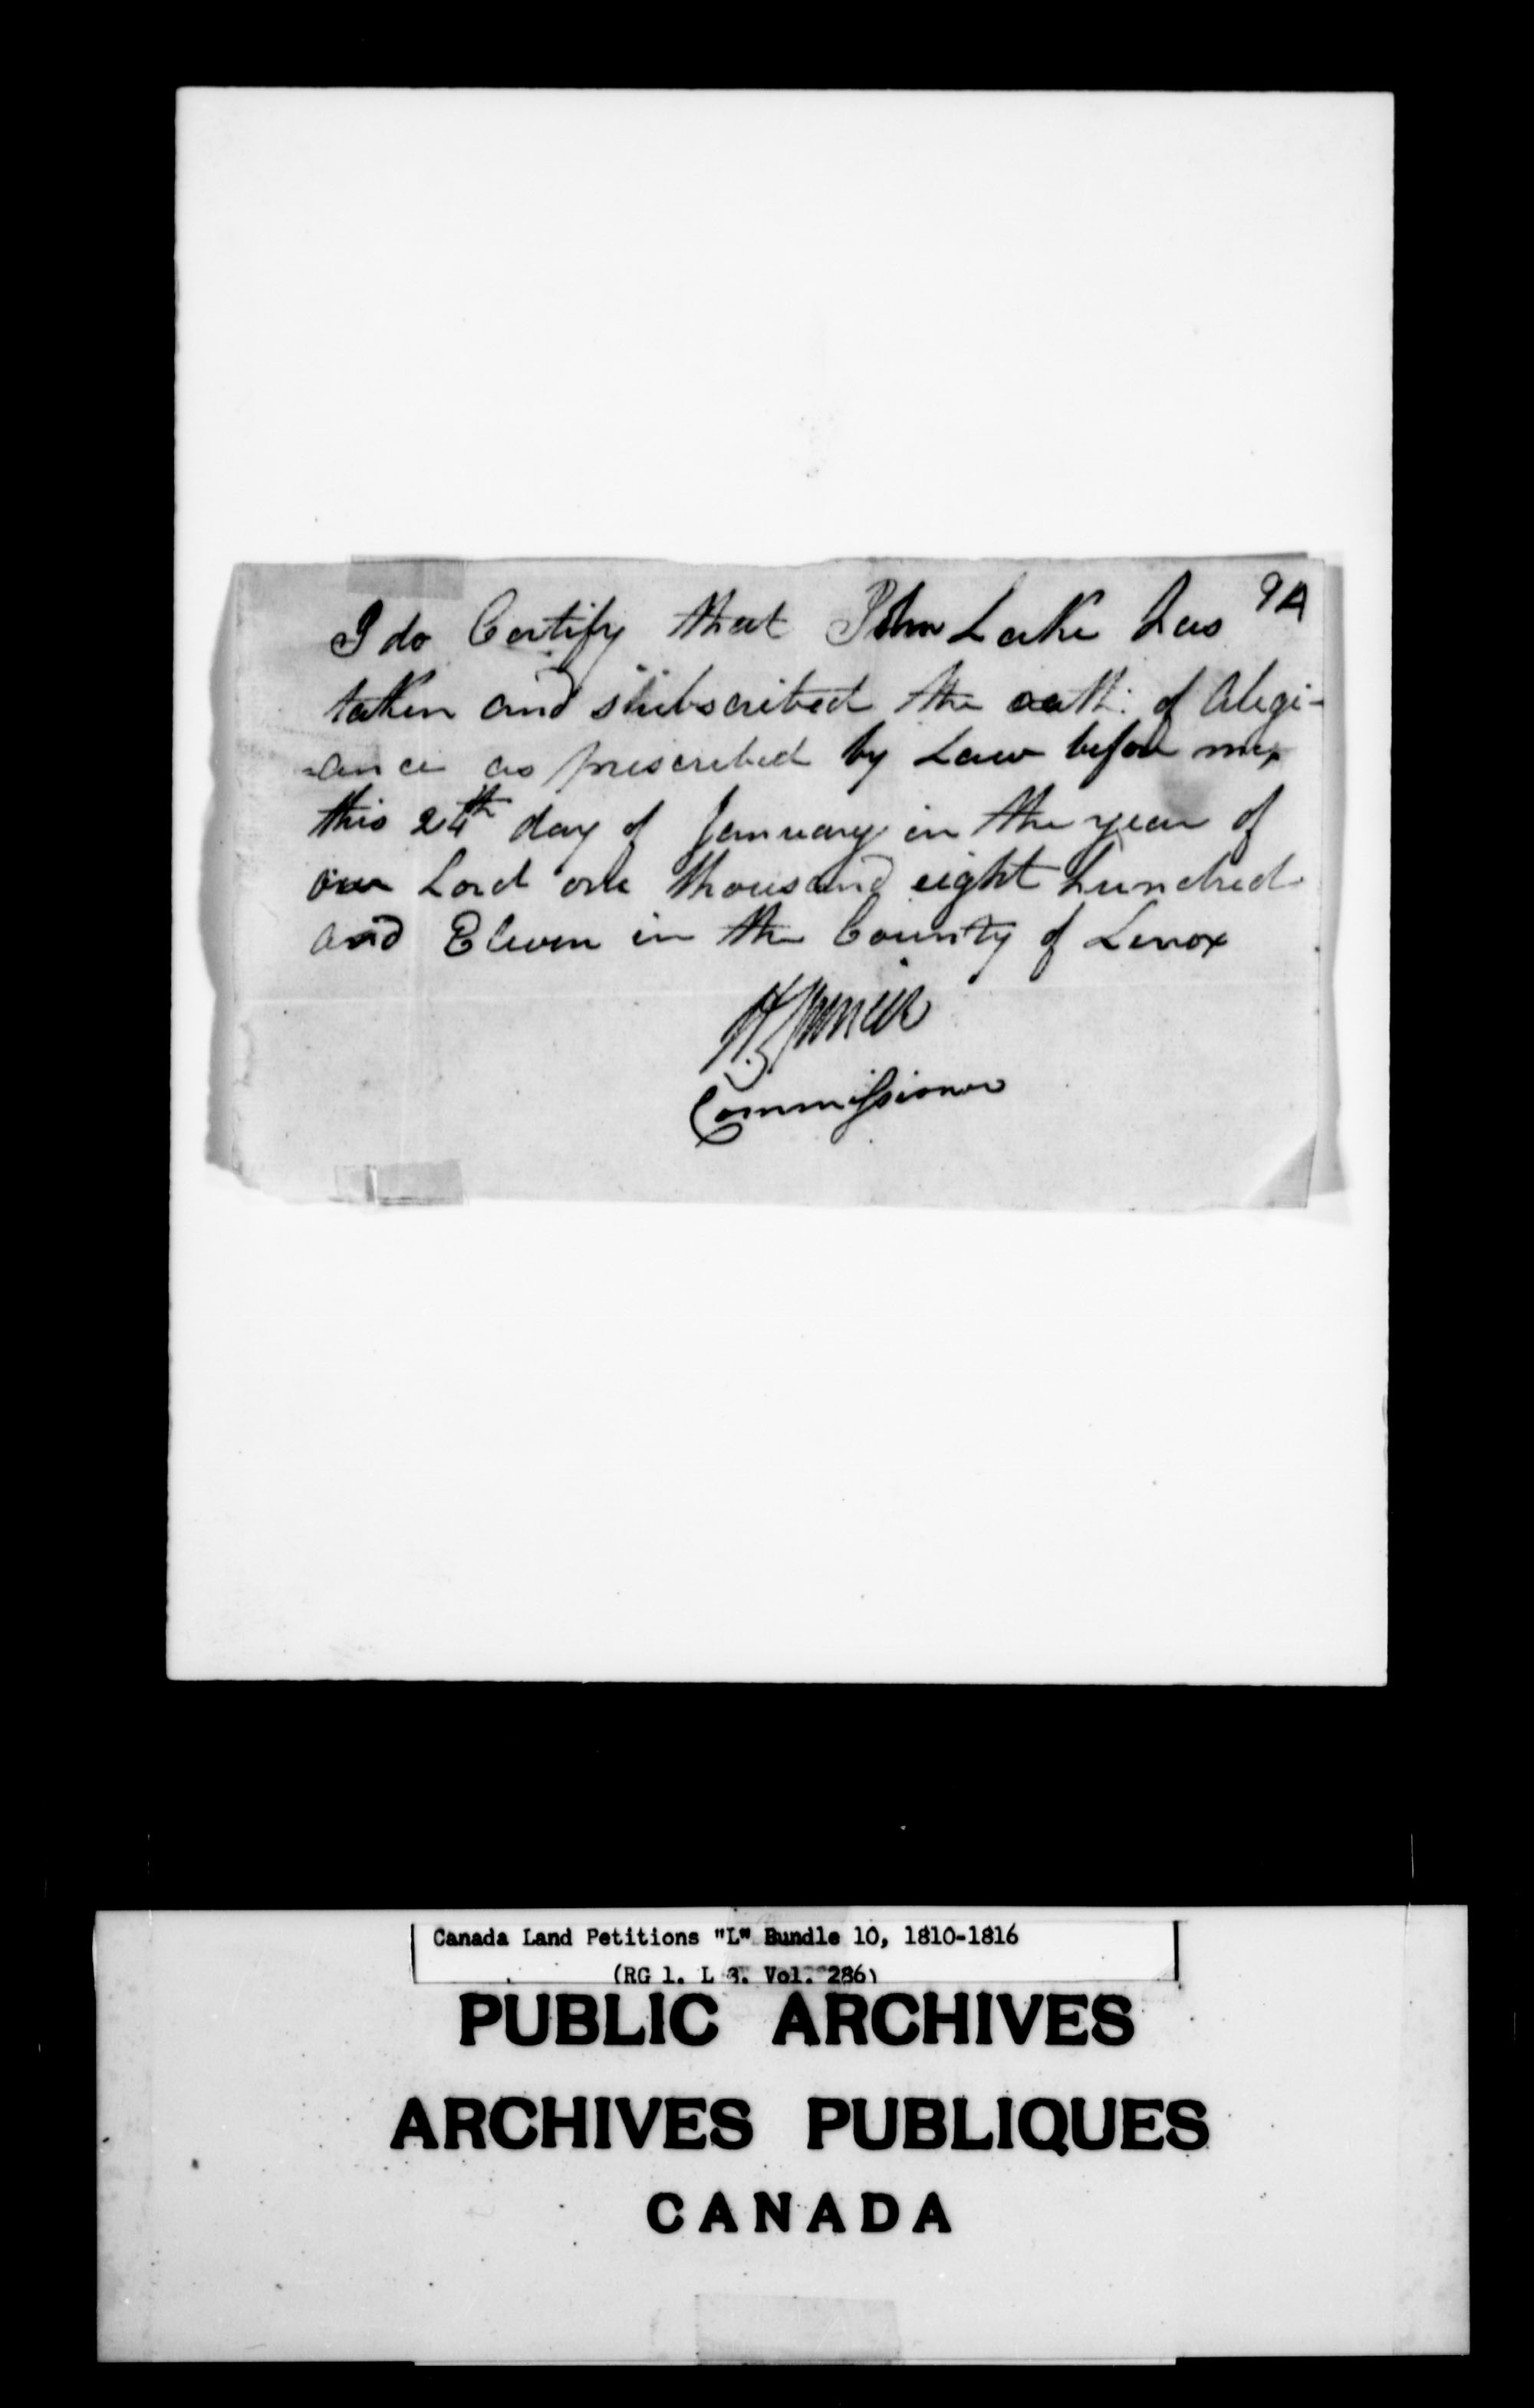 9A
I do Certify that John Lake has
taken and subscribed the oath of Alegi-
-ance as prescribed by Law before me,
this 24th day of January in the year of
our Lord one thousand eight hundred
and Eleven in the County of Lenox
Commissioner
Canada Land Petitions "L" Bundle 10, 1810-1816
(RG 1, L 3, Vol. 286)
PUBLIC ARCHIVES
ARCHIVES PUBLIQUES
CANADA